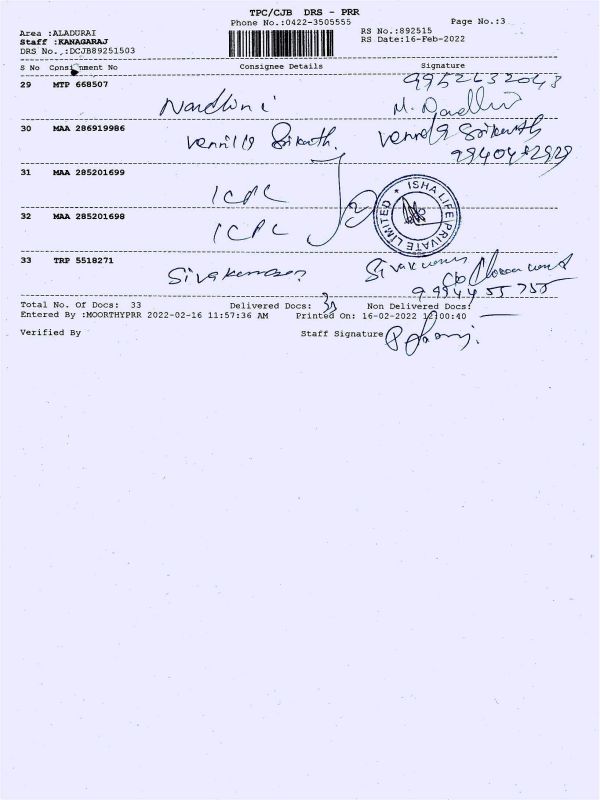 TPC/CJB DRS - PRR
Phone No.:0422-3505555
Page No.:3
Area :ALADURAI
RS No.:892515
Staff :KANAGARAJ
RS Date:16-Feb-2022
DRS No.,:DCJB89251503
S No Consignment No Consignee Details Signature
29 MTP 668507
Nandhini
30 MAA 286919986
31 MAA 285201699
ICPL
32 MAA 285201698
ICPL
ISHA LIFE PRIVATE LIMITED
33 TRP 5518271
Total No. Of Docs: 33 Delivered Docs: Non Delivered Docs:
Entered By :MOORTHYPRR 2022-02-16 11:57:36 AM Printed On: 16-02-2022 12:00:40
Verified By Staff Signature